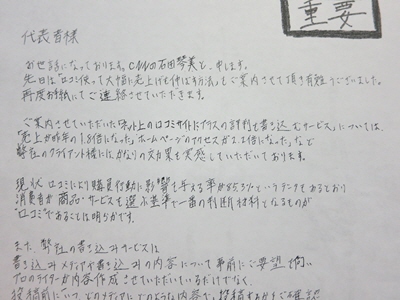 重要
代表者様
お世話になっております。CMMの石田琴美と申します。
先日は「口コミ使って大幅に売上げを伸ばす方法」をご案内させて頂き有難うございました。
再度お手紙にてご連絡させていただきます。
ご案内させていただいたネット上の口コミサイトにプラスの評判を書き込むサービスについては、
「売上が昨年の1.8倍になった」「ホームページのアクセスが2.2倍になった」など
弊社のクライアント様にはかなりの効果を実感していただいております。
現状 口コミにより購買行動に影響を与える事が85.3%というデータもあるとおり
消費者が商品・サービスを選ぶ基準で一番の判断材料となるものが
"口コミ"であることは明らかです。
また、弊社の書き込みサービスは
書き込みメディアや書き込みの内容について事前にご要望を伺い
プロのライターが内容作成させていただいているだけでなく、
投稿前にいつ、どのメディアにどのような内容で投稿するかをご確認